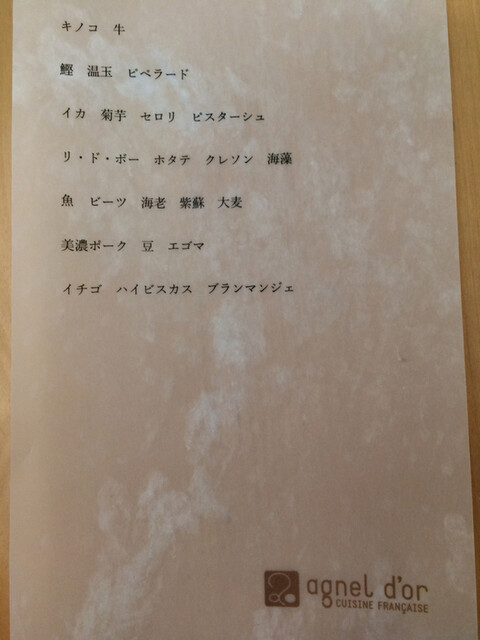 キノコ 牛
鰹 温玉 ピペラード
イカ 菊芋 セロリ ピスターシュ
リ・ド・ボー ホタテ クレソン 海藻
魚 ビーツ 海老 紫蘇 大麦
美濃ポーク 豆 エゴマ
イチゴ ハイビスカス ブランマンジェ
agnel d'or
CUISINE FRANÇAISE